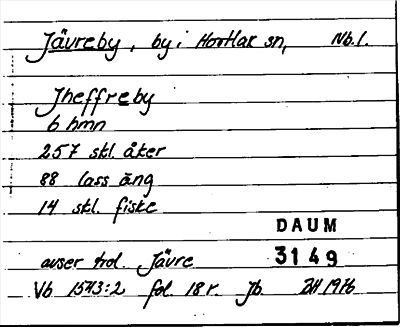 Jävreby, by i Hortlax sn, Nb.l.
Jheffreby
6 hmn
257 skl. åker
88 lass äng
14 skl. fiske
DAUM
avser trol. Jävre 3149
Vb 1543:2 fol. 18 r. Jb